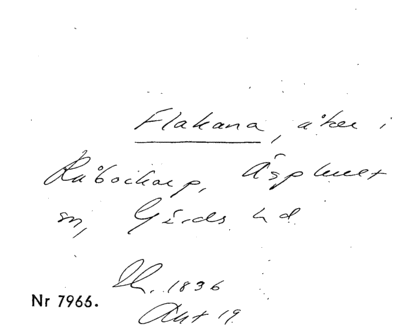 Flakana, åker i
Råbockarp, Äsphult
sn, Gärds hd
Sk. 1836
Akt 19
Nr 7966.